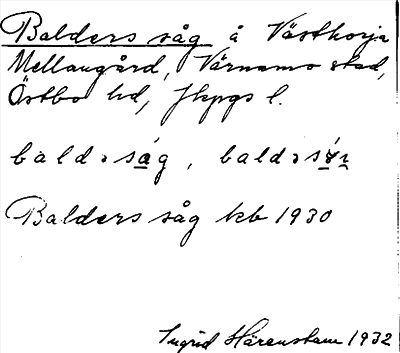 Balders såg å Västhorja
Mellangård, Värnamo stad,
Östbo hd, Jkpgs l.
baldəsá̲g, baldəs
Balders såg kb 1930
Ingrid Härenstam 1932